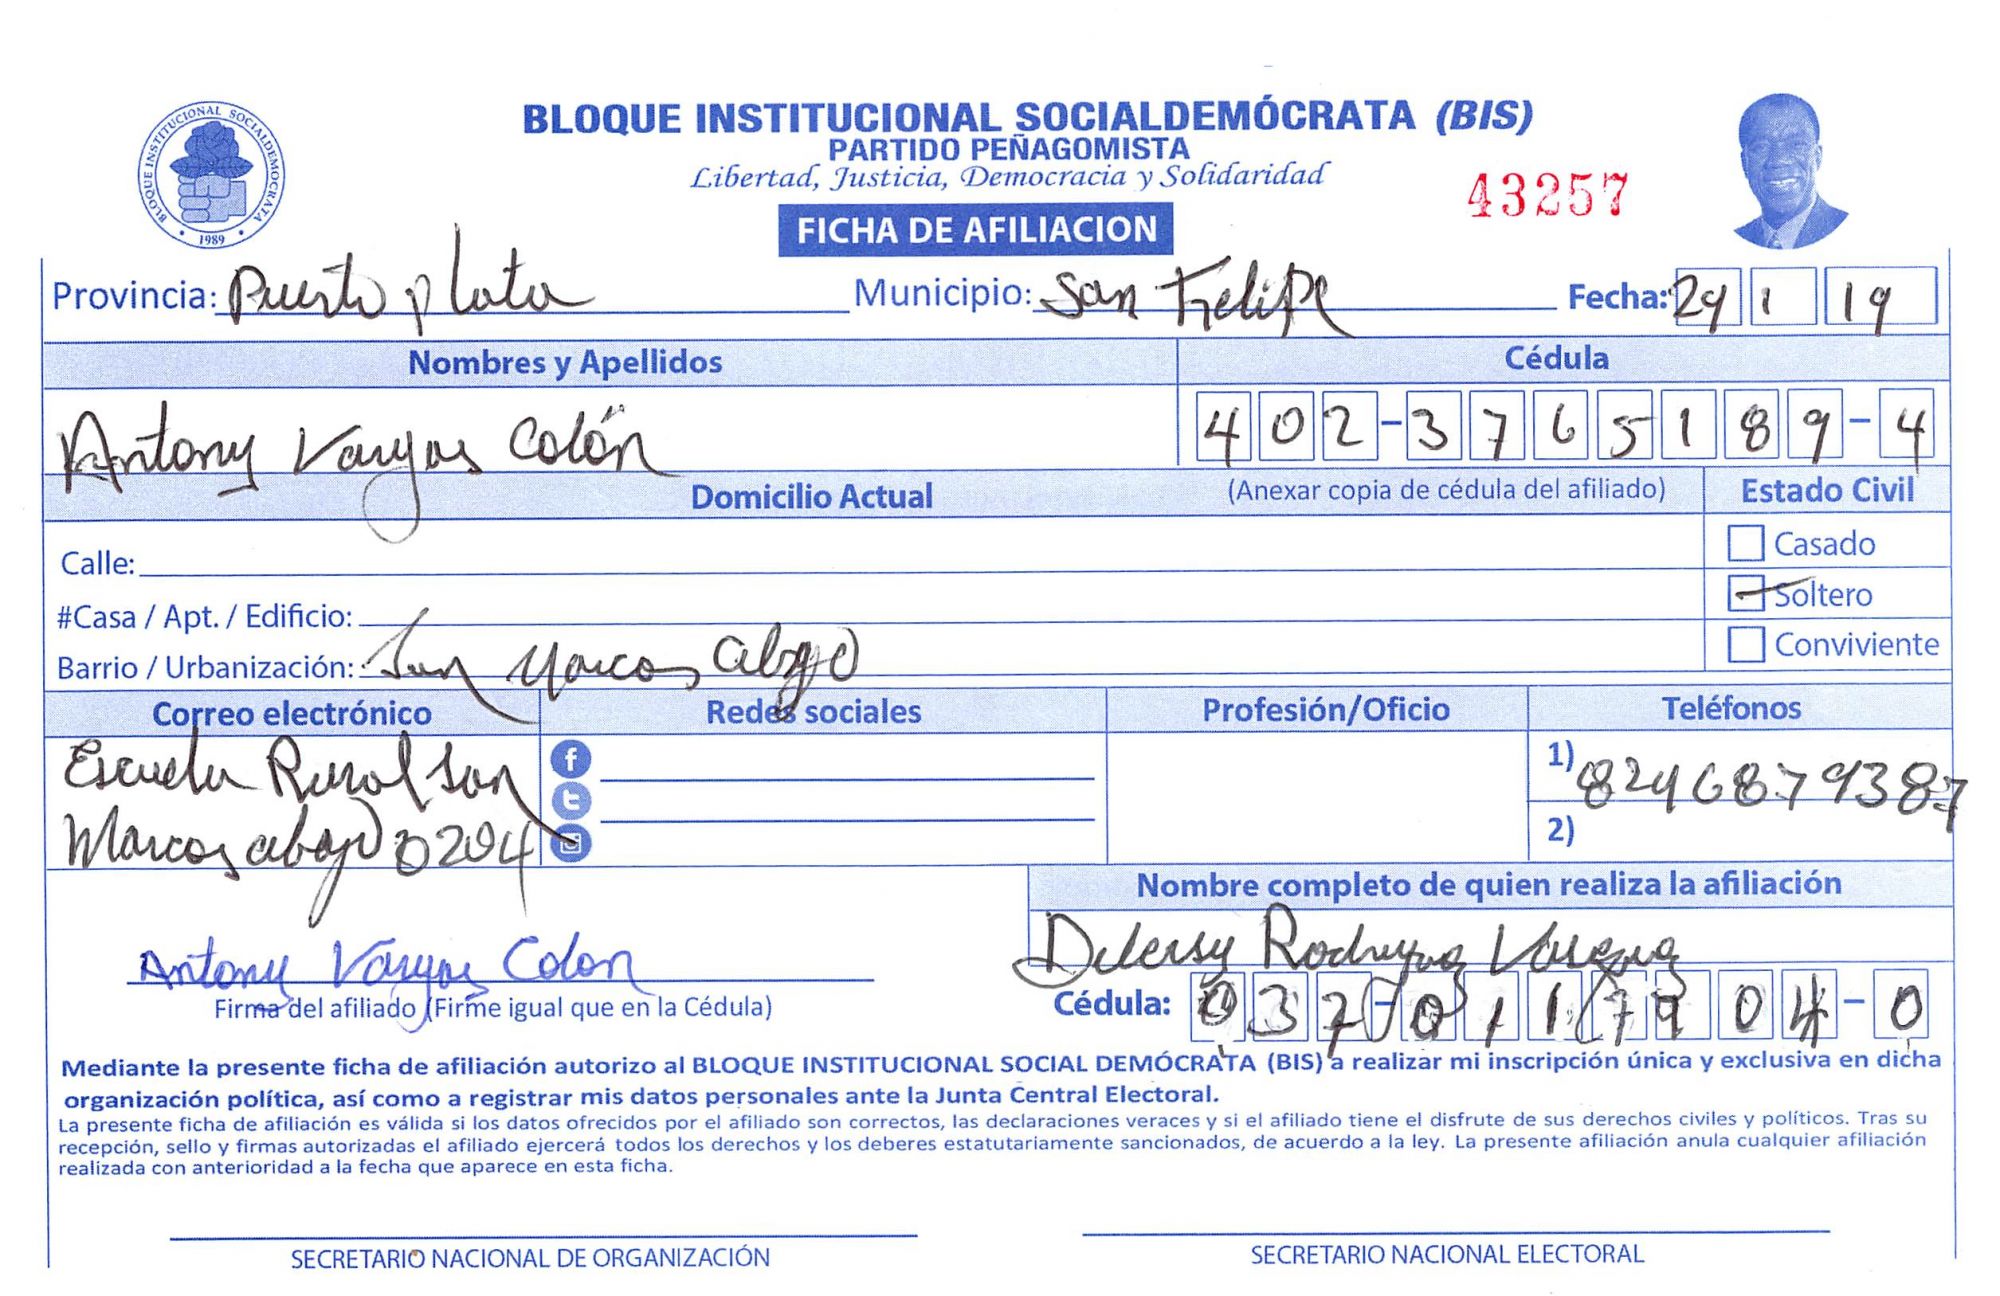 BLOQUE INSTITUCIONAL SOCIALDEMÓCRATA (BIS)
PARTIDO PEÑAGOMISTA
Libertad, Justicia, Democracia y Solidaridad
43257
BLOQUE INSTITUCIONAL SOCIALDEMOCRATA
1989
FICHA DE AFILIACION
Provincia: Puerto plata Municipio: San Felipe Fecha: 29 1 19
Nombres y Apellidos Cédula
Antony Vargas Colón 402-3765189-4
Domicilio Actual (Anexar copia de cédula del afiliado) Estado Civil
Calle: Casado
#Casa / Apt. / Edificio: Soltero
Barrio / Urbanización: San Marcos abajo Conviviente
Correo electrónico Redes sociales Profesión/Oficio Teléfonos
Escuela Rural San 1) 8296879387
Marcos abajo 0204 2)
Nombre completo de quien realiza la afiliación
Rodriguez
Antony Vargas Colon
Firma del afiliado (Firme igual que en la Cédula) Cédula: 037-0117904-0
Mediante la presente ficha de afiliación autorizo al BLOQUE INSTITUCIONAL SOCIAL DEMÓCRATA (BIS) a realizar mi inscripción única y exclusiva en dicha
organización política, así como a registrar mis datos personales ante la Junta Central Electoral.
La presente ficha de afiliación es válida si los datos ofrecidos por el afiliado son correctos, las declaraciones veraces y si el afiliado tiene el disfrute de sus derechos civiles y políticos. Tras su
recepción, sello y firmas autorizadas el afiliado ejercerá todos los derechos y los deberes estatutariamente sancionados, de acuerdo a la ley. La presente afiliación anula cualquier afiliación
realizada con anterioridad a la fecha que aparece en esta ficha.
SECRETARIO NACIONAL DE ORGANIZACIÓN SECRETARIO NACIONAL ELECTORAL